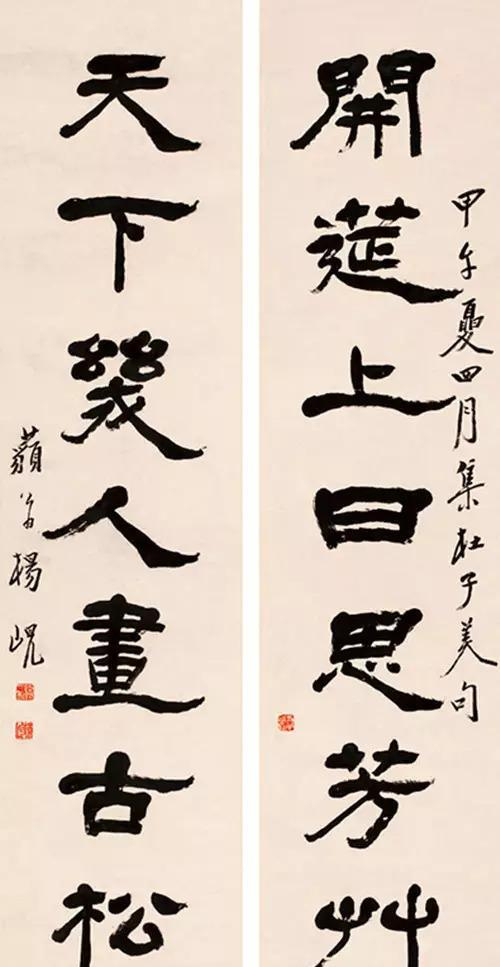 甲午夏四月集杜子美句
開筵上日思芳艸
天下幾人畫古松
藐翁楊峴